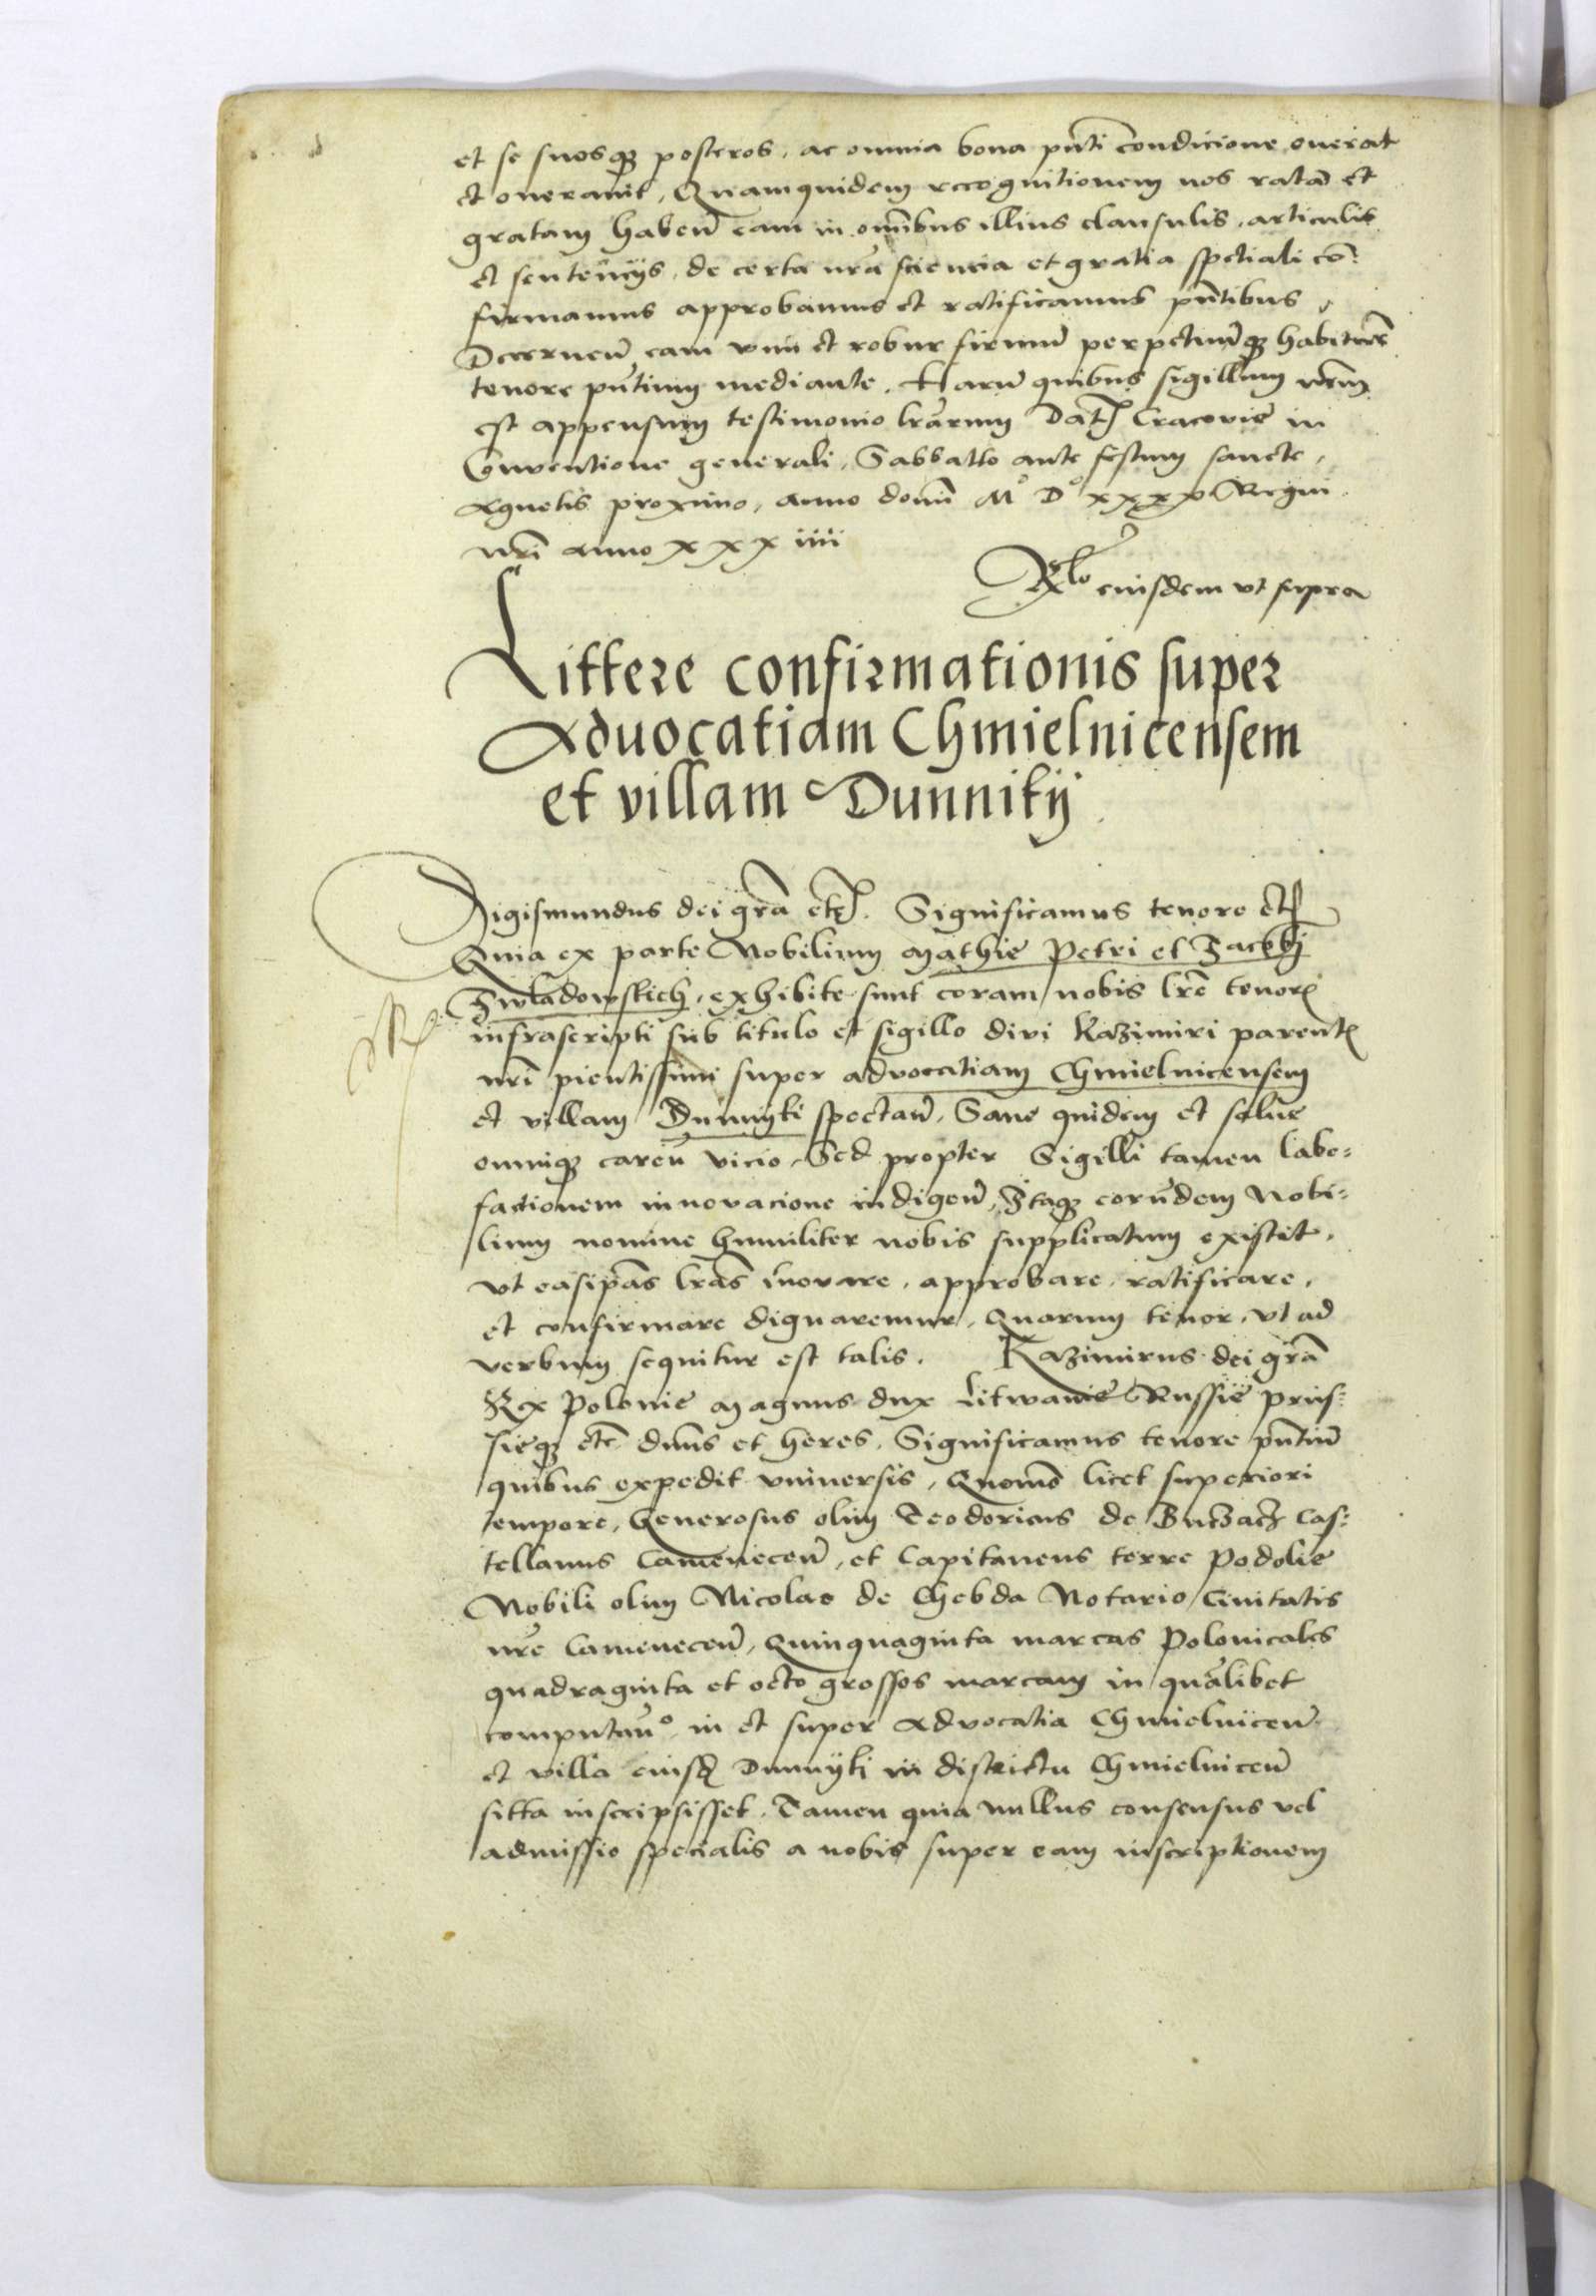 et se suosq₃ posteros, ac omnia bona pn̄ti condicione onerat
et oneravit, Quamquidem recognitionem nos ratā et
gratam haben̄ eam in om̄ibus illius clausulis, articulis
et sentencijs, de certa nr̄a sciencia et gratia spetiali cō:
firmamus approbamus et ratificamus pn̄tibus,
Decernen̄ eam vim et robur firmū perpetuūq₃ habiturā
tenore pn̄tium mediante, Harū quibus sigillum nr̄m
est appensum testimonio lr̄arum Dat Cracovie in
Conventione generali, Sabbatto ante festum sancte,
Agnetis proximo, anno domī Mo Do xxxx Regni
nr̄i anno xxx iiii
Rlo eiusdem vt supra
Littere confirmationis super
Advocatiam Chmielnicensem
et villam Dunnitij
Sigismundus dei gr̄a etc. Significamus tenore etc
Quia ex parte Nobilium Mathie Petri et Jacobi
Zwladowskich, exhibite sunt coram nobis lr̄e tenoris
infrascripti sub titulo et sigillo divi Kazimiri parentis
nr̄i pientissimi super advocatiam Chmielnicensem
et villam Dunnyki spectan̄, Sane quidem et salue
omniq₃ caren̄ vicio, Sed propter Sigilli tamen labe=
factionem innovacione indigen̄, Itaq₃ eorundem Nobi=
lium nomine humiliter nobis supplicatum existit,
vt easip̄as lr̄as īnovare, approbare, ratificare,
et confirmare dignaremur, Quarum tenor, vt ad
verbum sequitur est talis. Kazimirus dei gr̄a
Rex Polonie Magnus dux Litwanie Russie prus=
sieq₃ etc̄ dn̄us et heres, Significamus tenore pn̄tiū
quibus expedit vniversis, Quomō licet superiori
tempore, Generosus olim Teodoricus de Buczacz Cas=
tellanus Camenecen̄, et Capitaneus terre Podolie
Nobili olim Nicolao de Chebda Notario Civitatis
nr̄e Camenecen̄, Quinquaginta marcas Polonicales
quadraginta et octo grossos marcam in quālibet
computan̄o in et super Advocatia Chmielnicen̄
et villa eiusd Dunnyki in districtu Chmielnicen̄
sitta inscripsisset, Tamen quia nullus consensus vel
admissio specialis a nobis super eam inscriptionem